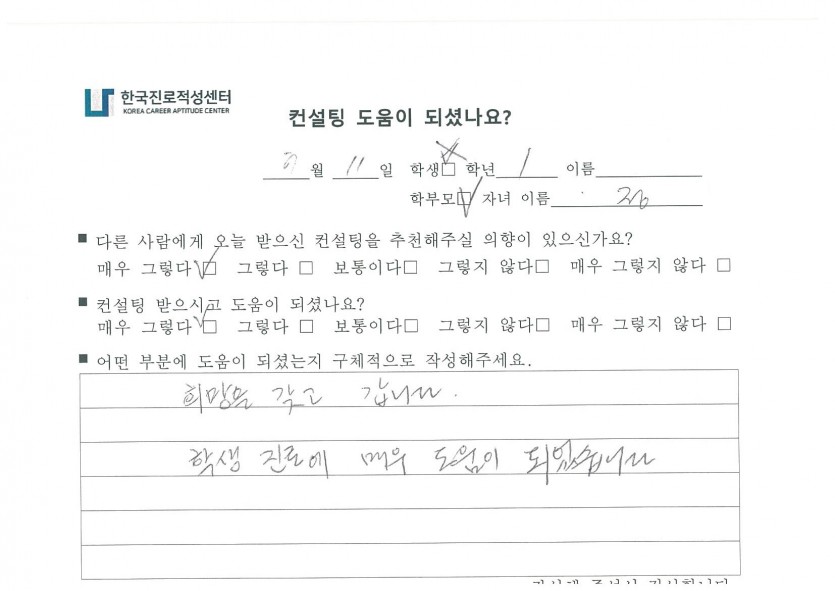 한국진로적성센터
KOREA CAREER APTITUDE CENTER
컨설팅 도움이 되셨나요?
월 11 일 학생□ 학년 1 이름
학부모☑ 자녀 이름
■ 다른 사람에게 오늘 받으신 컨설팅을 추천해주실 의향이 있으신가요?
매우 그렇다☑ 그렇다 □ 보통이다□ 그렇지 않다□ 매우 그렇지 않다 □
■ 컨설팅 받으시고 도움이 되셨나요?
매우 그렇다☑ 그렇다 □ 보통이다□ 그렇지 않다□ 매우 그렇지 않다 □
■ 어떤 부분에 도움이 되셨는지 구체적으로 작성해주세요.
희망을 갖고 갑니다.
학생 진로에 매우 도움이 되었습니다